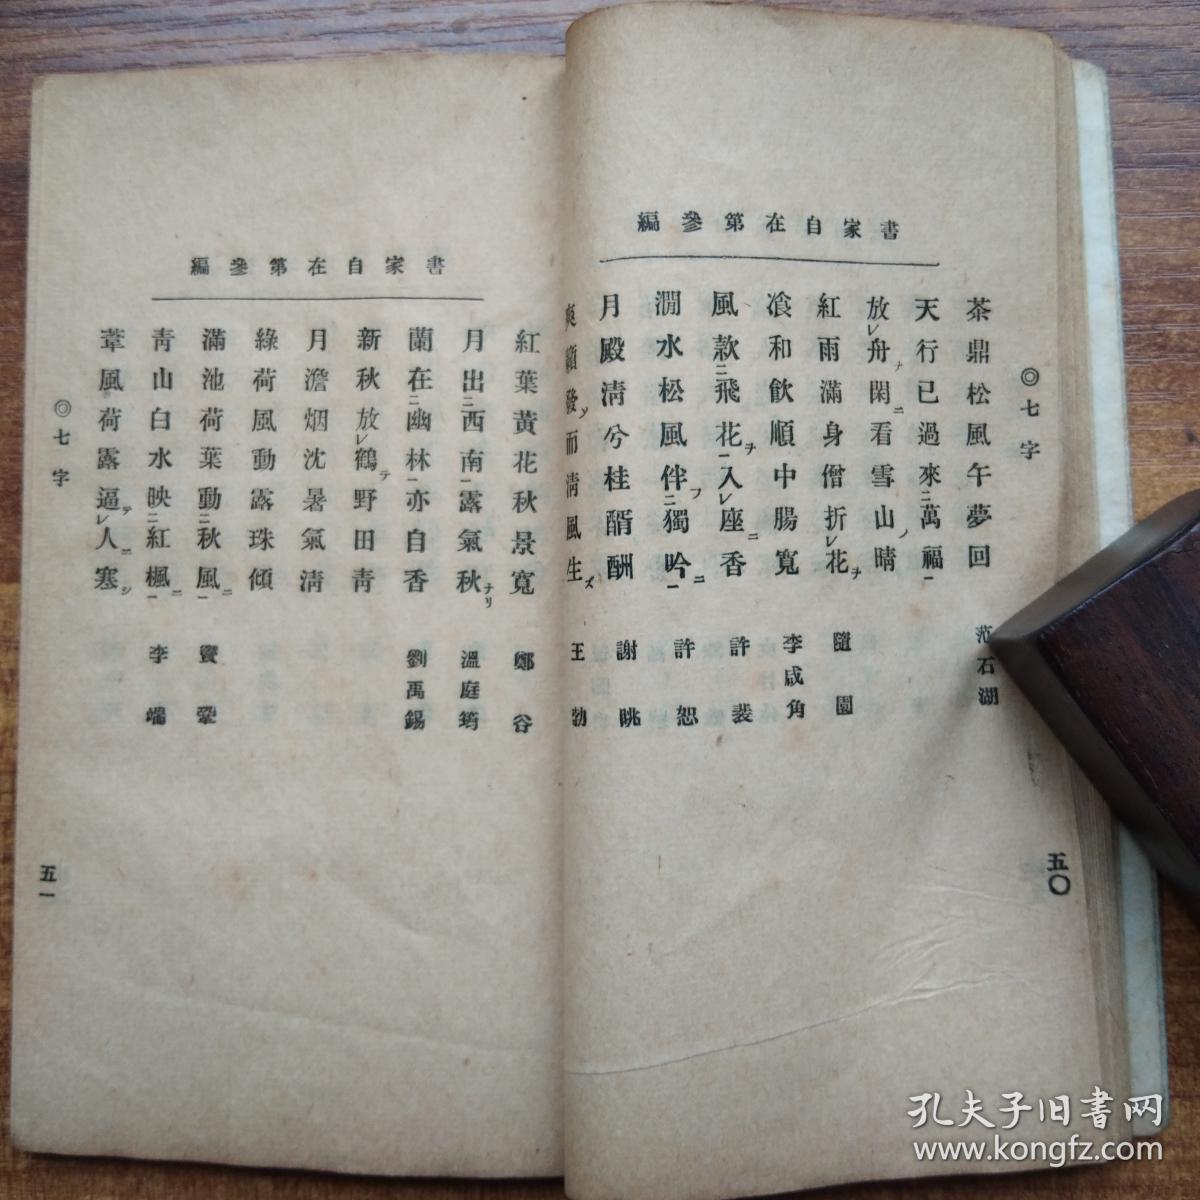 書家自在第參編
◎七字
茶鼎松風午夢回 范石湖
天行已過來二萬福一
放レ舟ナ閑ニ看雪山ノ晴
紅雨滿身僧折レ花ヲ 隨園
飡和飲順中腸寬 李咸角
風款二飛花一ヲ入レ座ニ香 許裴
澗水松風伴フ二獨吟一ニ 許恕
月殿淸兮桂醑酬 謝眺
爽籟發ソ而淸風生ズ 王勃
五〇
書家自在第參編
紅葉黃花秋景寬 鄭谷
月出二西南一露氣秋ナリ 溫庭筠
蘭在二幽林一亦自香 劉禹錫
新秋放レ鶴テ野田青
月澹烟沈暑氣淸
綠荷風動露珠傾
滿池荷葉動二秋風一ニ 竇鞏
靑山白水映二紅楓一ニ 李端
葦風荷露逼テレ人ニ寒シ
◎七字
五一
孔夫子旧书网
www.kongfz.com